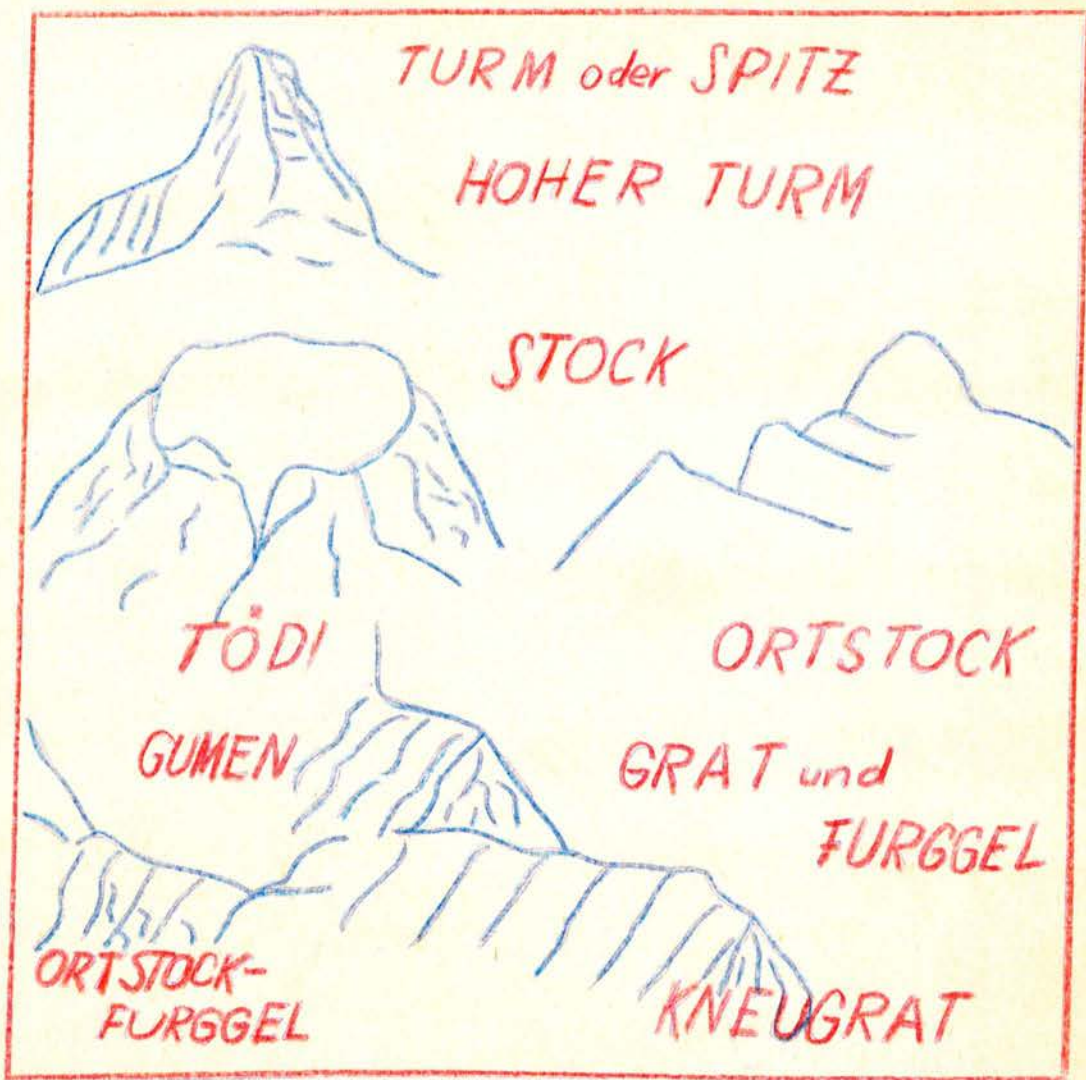 TURM oder SPITZ
HOHER TURM
STOCK
TÖDI
ORTSTOCK
GUMEN
GRAT und
FURGGEL
ORTSTOCK-
FURGGEL
KNEUGRAT